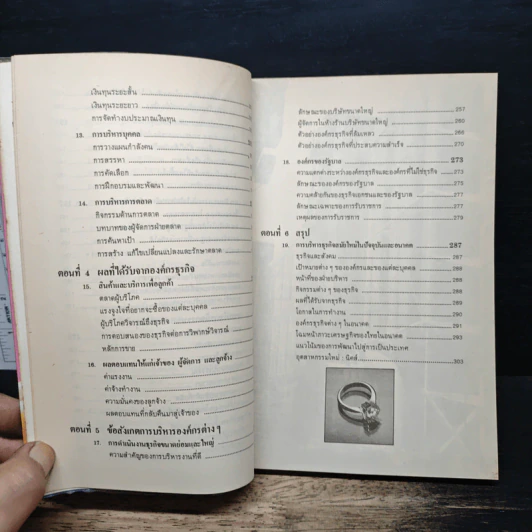 เงินทุนระยะสั้น
เงินทุนระยะยาว
การจัดทำงบประมาณเงินทุน
13. การบริหารบุคคล
การวางแผนกำลังคน
การสรรหา
การคัดเลือก
การฝึกอบรมและพัฒนา
14. การบริหารการตลาด
กิจกรรมด้านการตลาด
บทบาทของผู้จัดการฝ่ายตลาด
การค้นหาเป้า
การสร้าง แก้ไขเปลี่ยนแปลงและรักษาตลาด
ตอนที่ 4 ผลที่ได้รับจากองค์กรธุรกิจ
15. สินค้าและบริการเพื่อลูกค้า
ตลาดผู้บริโภค
แรงจูงใจที่อยากจะซื้อของแต่ละบุคคล
ผู้บริโภควิจารณ์ถึงธุรกิจ
การตอบสนองของธุรกิจต่อการวิพากษ์วิจารณ์
หลักการขาย
16. ผลตอบแทนให้แก่เจ้าของ ผู้จัดการ และลูกจ้าง
ค่าแรงงาน
ค่าจ้างทำงาน
ความมั่นคงของลูกจ้าง
ผลตอบแทนที่กลับคืนมาสู่เจ้าของ
ตอนที่ 5 ข้อสังเกตการบริหารองค์กรต่าง ๆ
17. การดำเนินงานธุรกิจขนาดย่อมและใหญ่
ความสำคัญของการบริหารงานที่ดี
ลักษณะของบริษัทขนาดใหญ่ 257
ผู้จัดการในห้างร้านบริษัทขนาดใหญ่ 260
ตัวอย่างองค์กรธุรกิจที่ล้มเหลว 266
ตัวอย่างองค์กรธุรกิจที่ประสบความสำเร็จ 270
18. องค์กรของรัฐบาล 273
ความแตกต่างระหว่างองค์กรธุรกิจและองค์กรที่ไม่ใช่ธุรกิจ 273
ลักษณะขององค์กรของรัฐบาล 275
ความคล้ายกันของธุรกิจเอกชนและของรัฐบาล 276
ลักษณะเฉพาะของการรับราชการ 277
เหตุผลของการรับราชการ 279
ตอนที่ 6 สรุป
19. การบริหารธุรกิจสมัยใหม่ในปัจจุบันและอนาคต 287
ธุรกิจและสังคม 287
เป้าหมายต่าง ๆ ขององค์กรและของแต่ละบุคคล 288
หน้าที่ของฝ่ายบริหาร 288
กิจกรรมต่าง ๆ ของธุรกิจ 288
ผลที่ได้รับจากธุรกิจ 289
โอกาสในการทำงาน 290
องค์กรธุรกิจต่าง ๆ ในอนาคต 290
โฉมหน้าภาวะเศรษฐกิจของไทยในอนาคต 291
แนวโน้มของการพัฒนาไปสู่การเป็นประเทศ
อุตสาหกรรมใหม่ : นิคส์ 303